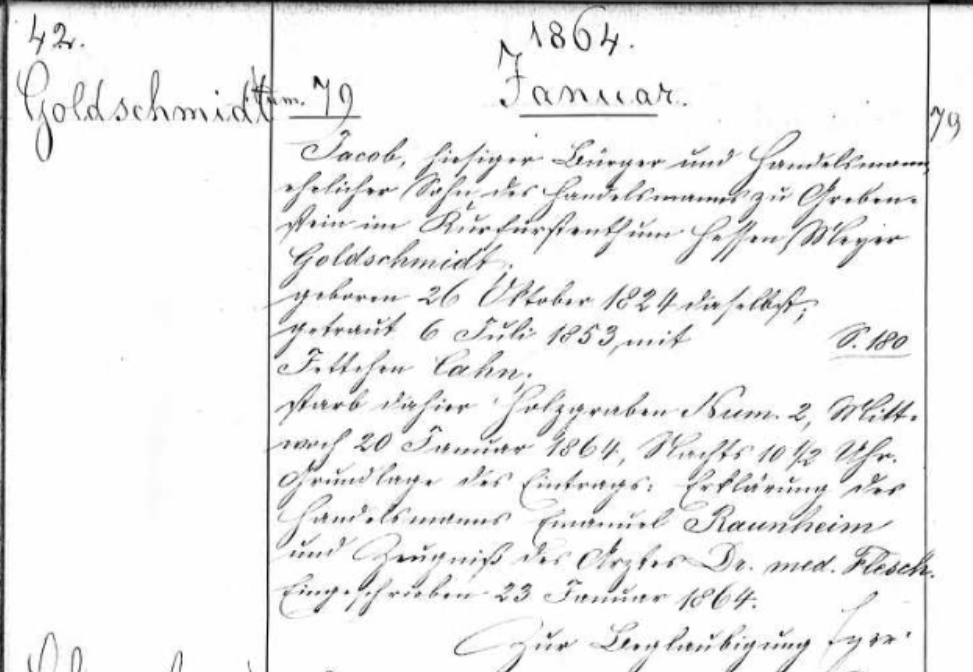 42.
1864.
Goldschmidt
Num. 79
Januar.
79
Jacob, hiesiger Bürger und Handelsmann,
ehelicher Sohn des Handelsmanns zu Greben-
stein im Kurfürstenthum Hessen Meyer
Goldschmidt,
geboren 26 Oktober 1824 daselbst;
getraut 6 Juli 1853, mit S. 180
Jettchen Cahn;
starb dahier Holzgraben Num. 2, Mitt-
woch 20 Januar 1864, Nachts 10 1/2 Uhr.
Grundlage des Eintrags: Erklärung des
Handelsmanns Emanuel Raunheim
und Zeugniß des Arztes Dr. med. Flesch.
Eingeschrieben 23 Januar 1864.
Zur Beglaubigung